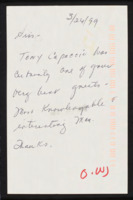 3/24/99
Tony Capozzi has
certainly one of your
very best guests.
Most Knowledgeable &
interesting Man.
Thanks.
O.W.